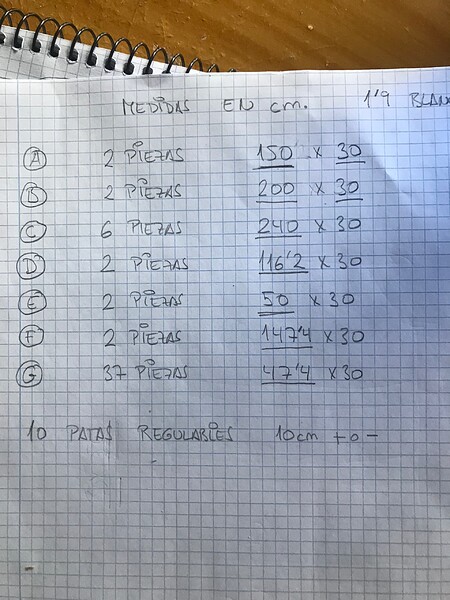 MEDIDAS EN cm. 1'9 BLAN
A 2 PIEZAS 150 x 30
B 2 PIEZAS 200 x 30
C 6 PIEZAS 240 x 30
D 2 PIEZAS 116'2 x 30
E 2 PIEZAS 50 x 30
F 2 PIEZAS 147'4 x 30
G 37 PIEZAS 47'4 x 30
10 PATAS REGULABLES 10cm + o -